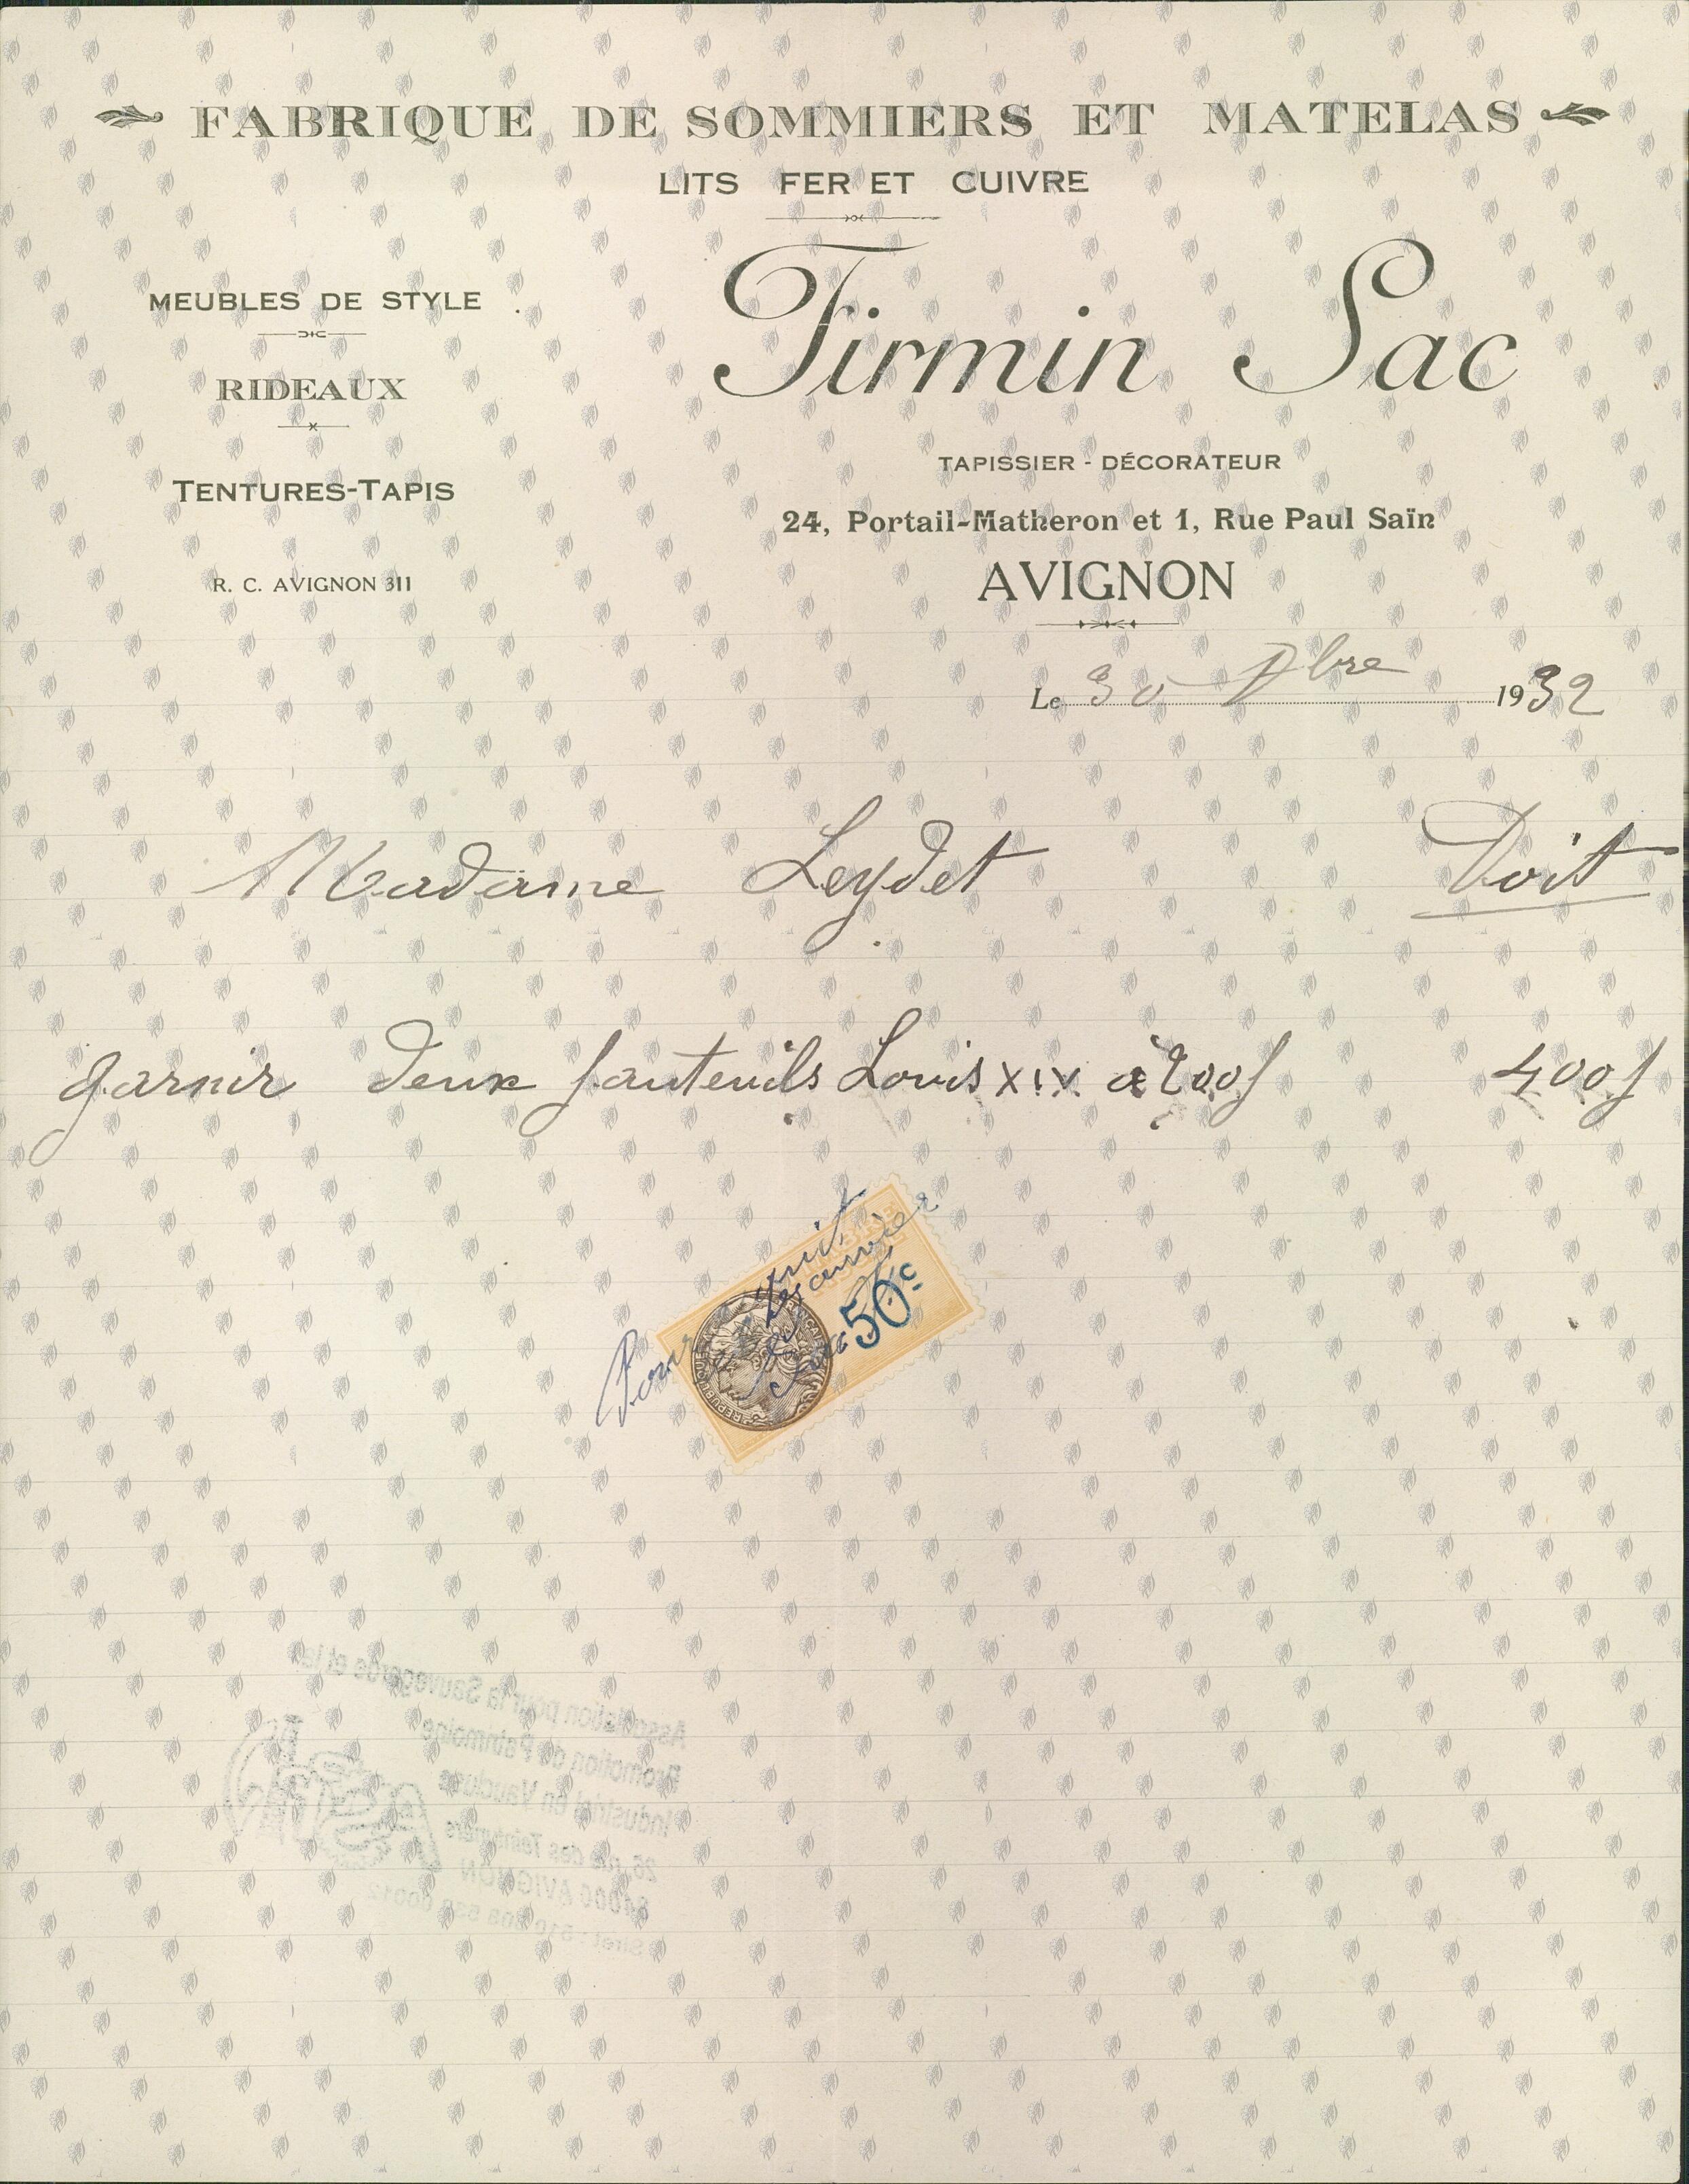 FABRIQUE DE SOMMIERS ET MATELAS
LITS FER ET CUIVRE
MEUBLES DE STYLE
RIDEAUX
TENTURES-TAPIS
R. C. AVIGNON 311
Firmin Sac
TAPISSIER - DÉCORATEUR
24, Portail-Matheron et 1, Rue Paul Saïn
AVIGNON
Le 30 bre 1932
Madame Leydet Doit
garnir deux fauteuils Louis XIV à 200f 400f
Pour
50c
Association pour la Sauvegarde et la
Promotion du Patrimoine
Industriel en Vaucluse
26, rue des Teinturiers
84000 AVIGNON
Siret :